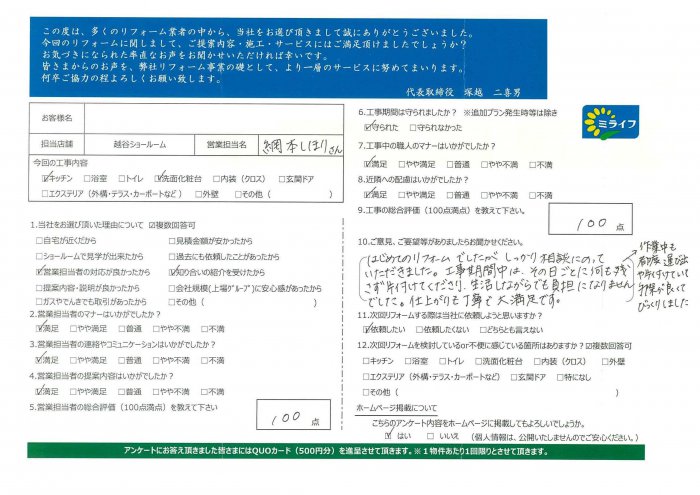 この度は、多くのリフォーム業者の中から、当社をお選び頂きまして誠にありがとうございました。
今回のリフォームに関しまして、ご提案内容・施工・サービスにはご満足頂けましたでしょうか？
お気づきになられた率直なお声をお聞かせいただければ幸いです。
皆さまからのお声を、弊社リフォーム事業の礎として、より一層のサービスに努めてまいります。
何卒ご協力の程よろしくお願い致します。
代表取締役　塚越　二喜男
ミライフ
お客様名
担当店舗　越谷ショールーム　営業担当名　綱本しほりさん
今回の工事内容
☑キッチン　□浴室　□トイレ　☑洗面化粧台　□内装（クロス）　□玄関ドア
□エクステリア（外構・テラス・カーポートなど）　□外壁　□その他（　　　）
1.当社をお選び頂いた理由について ☑複数回答可
□自宅が近くだから　□見積金額が安かったから
□ショールームで見学が出来たから　□過去にも依頼したことがあったから
☑営業担当者の対応が良かったから　☑知り合いの紹介を受けたから
□提案内容・説明が良かったから　□会社規模(上場ｸﾞﾙｰﾌﾟ)に安心感があったから
□ガスやでんきでも取引があったから　□その他（　　　）
2.営業担当者のマナーはいかがでしたか？
☑満足　□やや満足　□普通　□やや不満　□不満
3.営業担当者の連絡やコミュニケーションはいかがでしたか？
☑満足　□やや満足　□普通　□やや不満　□不満
4.営業担当者の提案内容はいかがでしたか？
☑満足　□やや満足　□普通　□やや不満　□不満
5.営業担当者の総合評価（100点満点）を教えて下さい
100 点
6.工事期間は守られましたか？ ※追加プラン発生時等は除き
☑守られた　□守られなかった
7.工事中の職人のマナーはいかがでしたか？
☑満足　□やや満足　□普通　□やや不満　□不満
8.近隣への配慮はいかがでしたか？
☑満足　□やや満足　□普通　□やや不満　□不満
9.工事の総合評価（100点満点）を教えて下さい。
100 点
10.ご意見、ご要望等がありましたらお聞かせください。
はじめてのリフォームでしたが しっかり相談にのって
いただきました。工事期間中は、その日ごとに何も残
さず片付けてくださり、生活しながらでも負担になりません
でした。仕上がりも丁寧で大満足です。
作業中も
都度
や片付けていて
手際が良くて
びっくりしました
11.次回リフォームする際は当社に依頼しようと思いますか？
☑依頼したい　□依頼したくない　□どちらとも言えない
12.次回リフォームを検討しているor不便に感じている箇所はありますか？ ☑複数回答可
□キッチン　□浴室　□トイレ　□洗面化粧台　□内装（クロス）　□外壁
□エクステリア（外構・テラス・カーポートなど）　□玄関ドア　□特になし
□その他（　　　）
ホームページ掲載について
こちらのアンケート内容をホームページに掲載してもよろしいでしょうか。
☑はい　□いいえ　（個人情報は、公開いたしませんのでご安心ください。）
アンケートにお答え頂きました皆さまにはQUOカード（500円分）を進呈させて頂きます。※１物件あたり1回限りとさせて頂きます。